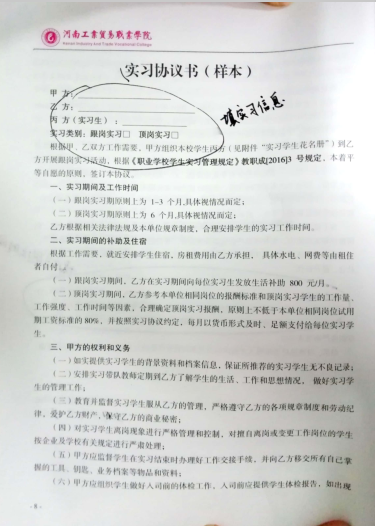 河南工业贸易职业学院
Henan Industry And Trade Vocational College
实习协议书（样本）
甲 方：
乙 方：
丙 方（实习生）：
填实习信息
实习类别：跟岗实习□ 顶岗实习□
根据甲、乙双方工作需要，甲方组织本校学生丙方（见附件“实习学生花名册”）到乙
方开展跟岗实习活动，根据《职业学校学生实习管理规定》教职成[2016]3 号规定，本着平
等自愿的原则，签订本协议。
一、实习期间及工作时间
（一）跟岗实习期原则上为 1-3 个月,具体视情况而定；
（二）顶岗实习期原则上为 6 个月,具体视情况而定；
乙方根据相关法律法规及本单位规章制度，合理安排学生的实习工作时间。
二、实习期间的补助及住宿
根据工作需要，就近安排学生住宿，房租费用由乙方承担， 具体水电、网费等由租住
者自付。
（一）跟岗实习期间，乙方在实习期间向每位实习生发放生活补助 800 元/月。
（二）顶岗实习期间，乙方参考本单位相同岗位的报酬标准和顶岗实习学生的工作量、
工作强度、工作时间等因素，合理确定顶岗实习报酬，原则上不低于本单位相同岗位试用
期工资标准的 80%，并按照实习协议约定，每月以货币形式及时、足额支付给每位实习学
生。
三、甲方的权利和义务
（一）如实提供实习学生的背景资料和档案信息，保证所推荐的实习学生无不良记录；
（二）安排实习带队教师定期到乙方了解学生的生活、工作和思想情况， 做好实习学
生的管理工作；
（三）教育并监督实习学生服从乙方的管理，严格遵守乙方的各项规章制度和劳动纪
律，爱护乙方财产，保守乙方的商业秘密；
（四）对实习学生离岗现象进行严格管理和控制，对擅自离岗或变更工作岗位的学生
按企业及学校有关规定进行严肃处理；
（五）甲方应监督学生在实习结束时办理好工作交接手续，并向乙方移交所有自己掌
握的工具、钥匙、业务档案等物品和资料；
（六）甲方应组织学生做好入司前的体检工作，入司前应提供学生体检报告，如出现
- 8 -